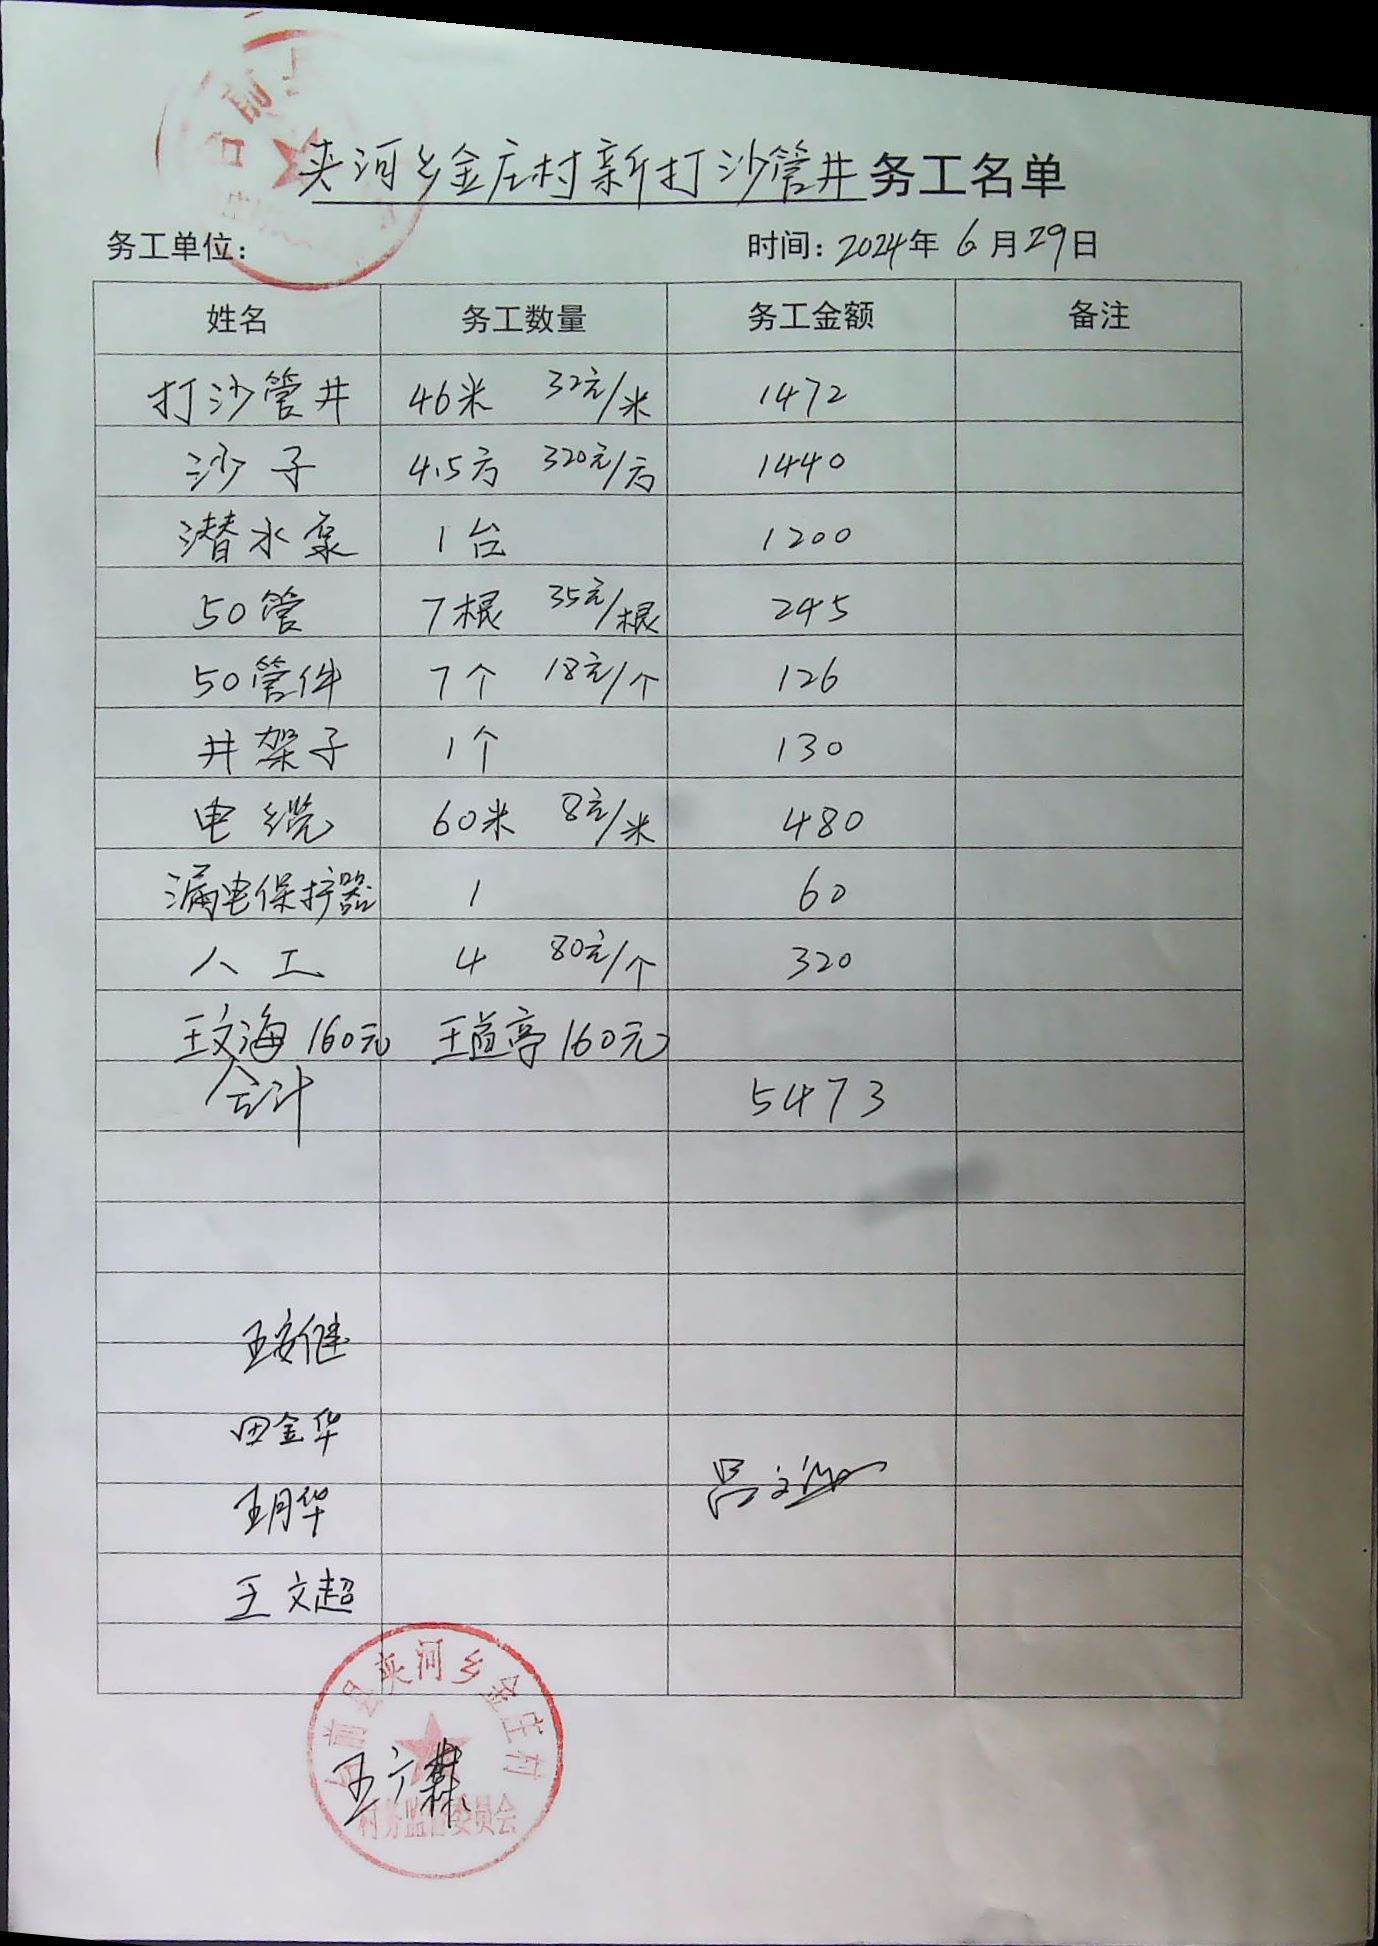 夹河乡金庄村新打沙管井务工名单
务工单位： 时间：2024年6月29日
姓名 务工数量 务工金额 备注
打沙管井 46米 32元/米 1472
沙子 4.5方 320元/方 1440
潜水泵 1台 1200
50管 7根 35元/根 245
50管件 7个 18元/个 126
井架子 1个 130
电缆 60米 8元/米 480
漏电保护器 1 60
人工 4 80元/个 320
王文海 160元 王道亭 160元
合计 5473
王安继
田金华
吕文
王月华
王文超
台前县夹河乡金庄村
王广
村务监督委员会